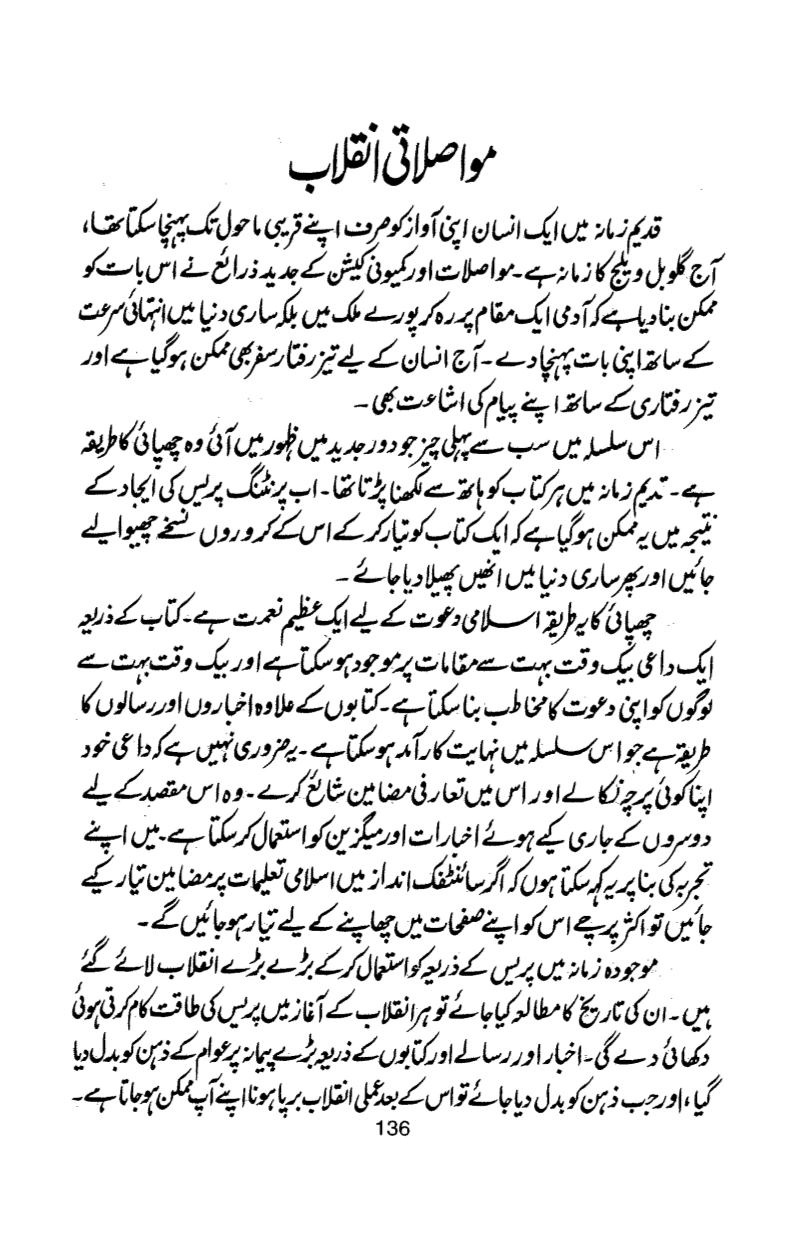 مواصلاتی انقلاب
قدیم زمانہ میں ایک انسان اپنی آواز کو صرف اپنے قریبی ماحول تک پہنچا سکتا تھا،
آج گلوبل ویلج کا زمانہ ہے۔ مواصلات اور کمیونی کیشن کے جدید ذرائع نے اس بات کو
ممکن بنا دیا ہے کہ آدمی ایک مقام پر رہ کر پورے ملک میں بلکہ ساری دنیا میں انتہائی سرعت
کے ساتھ اپنی بات پہنچا دے۔ آج انسان کے لیے تیز رفتار سفر بھی ممکن ہو گیا ہے اور
تیز رفتاری کے ساتھ اپنے پیام کی اشاعت بھی۔
اس سلسلہ میں سب سے پہلی چیز جو دور جدید میں ظہور میں آئی وہ چھپائی کا طریقہ
ہے۔ قدیم زمانہ میں ہر کتاب کو ہاتھ سے لکھنا پڑتا تھا۔ اب پرنٹنگ پریس کی ایجاد کے
نتیجہ میں یہ ممکن ہو گیا ہے کہ ایک کتاب کو تیار کر کے اس کے کروروں نسخے چھپوا لیے
جائیں اور پھر ساری دنیا میں انھیں پھیلا دیا جائے۔
چھپائی کا یہ طریقہ اسلامی دعوت کے لیے ایک عظیم نعمت ہے۔ کتاب کے ذریعہ
ایک داعی بیک وقت بہت سے مقامات پر موجود ہو سکتا ہے اور بیک وقت بہت سے
لوگوں کو اپنی دعوت کا مخاطب بنا سکتا ہے۔ کتابوں کے علاوہ اخباروں اور رسالوں کا
طریقہ ہے جو اس سلسلہ میں نہایت کار آمد ہو سکتا ہے۔ یہ ضروری نہیں ہے کہ داعی خود
اپنا کوئی پرچہ نکالے اور اس میں تعارفی مضامین شایع کرے۔ وہ اس مقصد کے لیے
دوسروں کے جاری کیے ہوئے اخبارات اور میگزین کو استعمال کر سکتا ہے۔ میں اپنے
تجربہ کی بنا پر یہ کہہ سکتا ہوں کہ اگر سائنٹفک انداز میں اسلامی تعلیمات پر مضامین تیار کیے
جائیں تو اکثر پرچے اس کو اپنے صفحات میں چھاپنے کے لیے تیار ہو جائیں گے۔
موجودہ زمانہ میں پریس کے ذریعہ کو استعمال کر کے بڑے بڑے انقلاب لائے گئے
ہیں۔ ان کی تاریخ کا مطالعہ کیا جائے تو ہر انقلاب کے آغاز میں پریس کی طاقت کام کرتی ہوئی
دکھائی دے گی۔ اخبار اور رسالے اور کتابوں کے ذریعہ بڑے پیمانہ پر عوام کے ذہن کو بدل دیا
گیا، اور جب ذہن کو بدل دیا جائے تو اس کے بعد عملی انقلاب برپا ہونا اپنے آپ ممکن ہو جاتا ہے۔
136